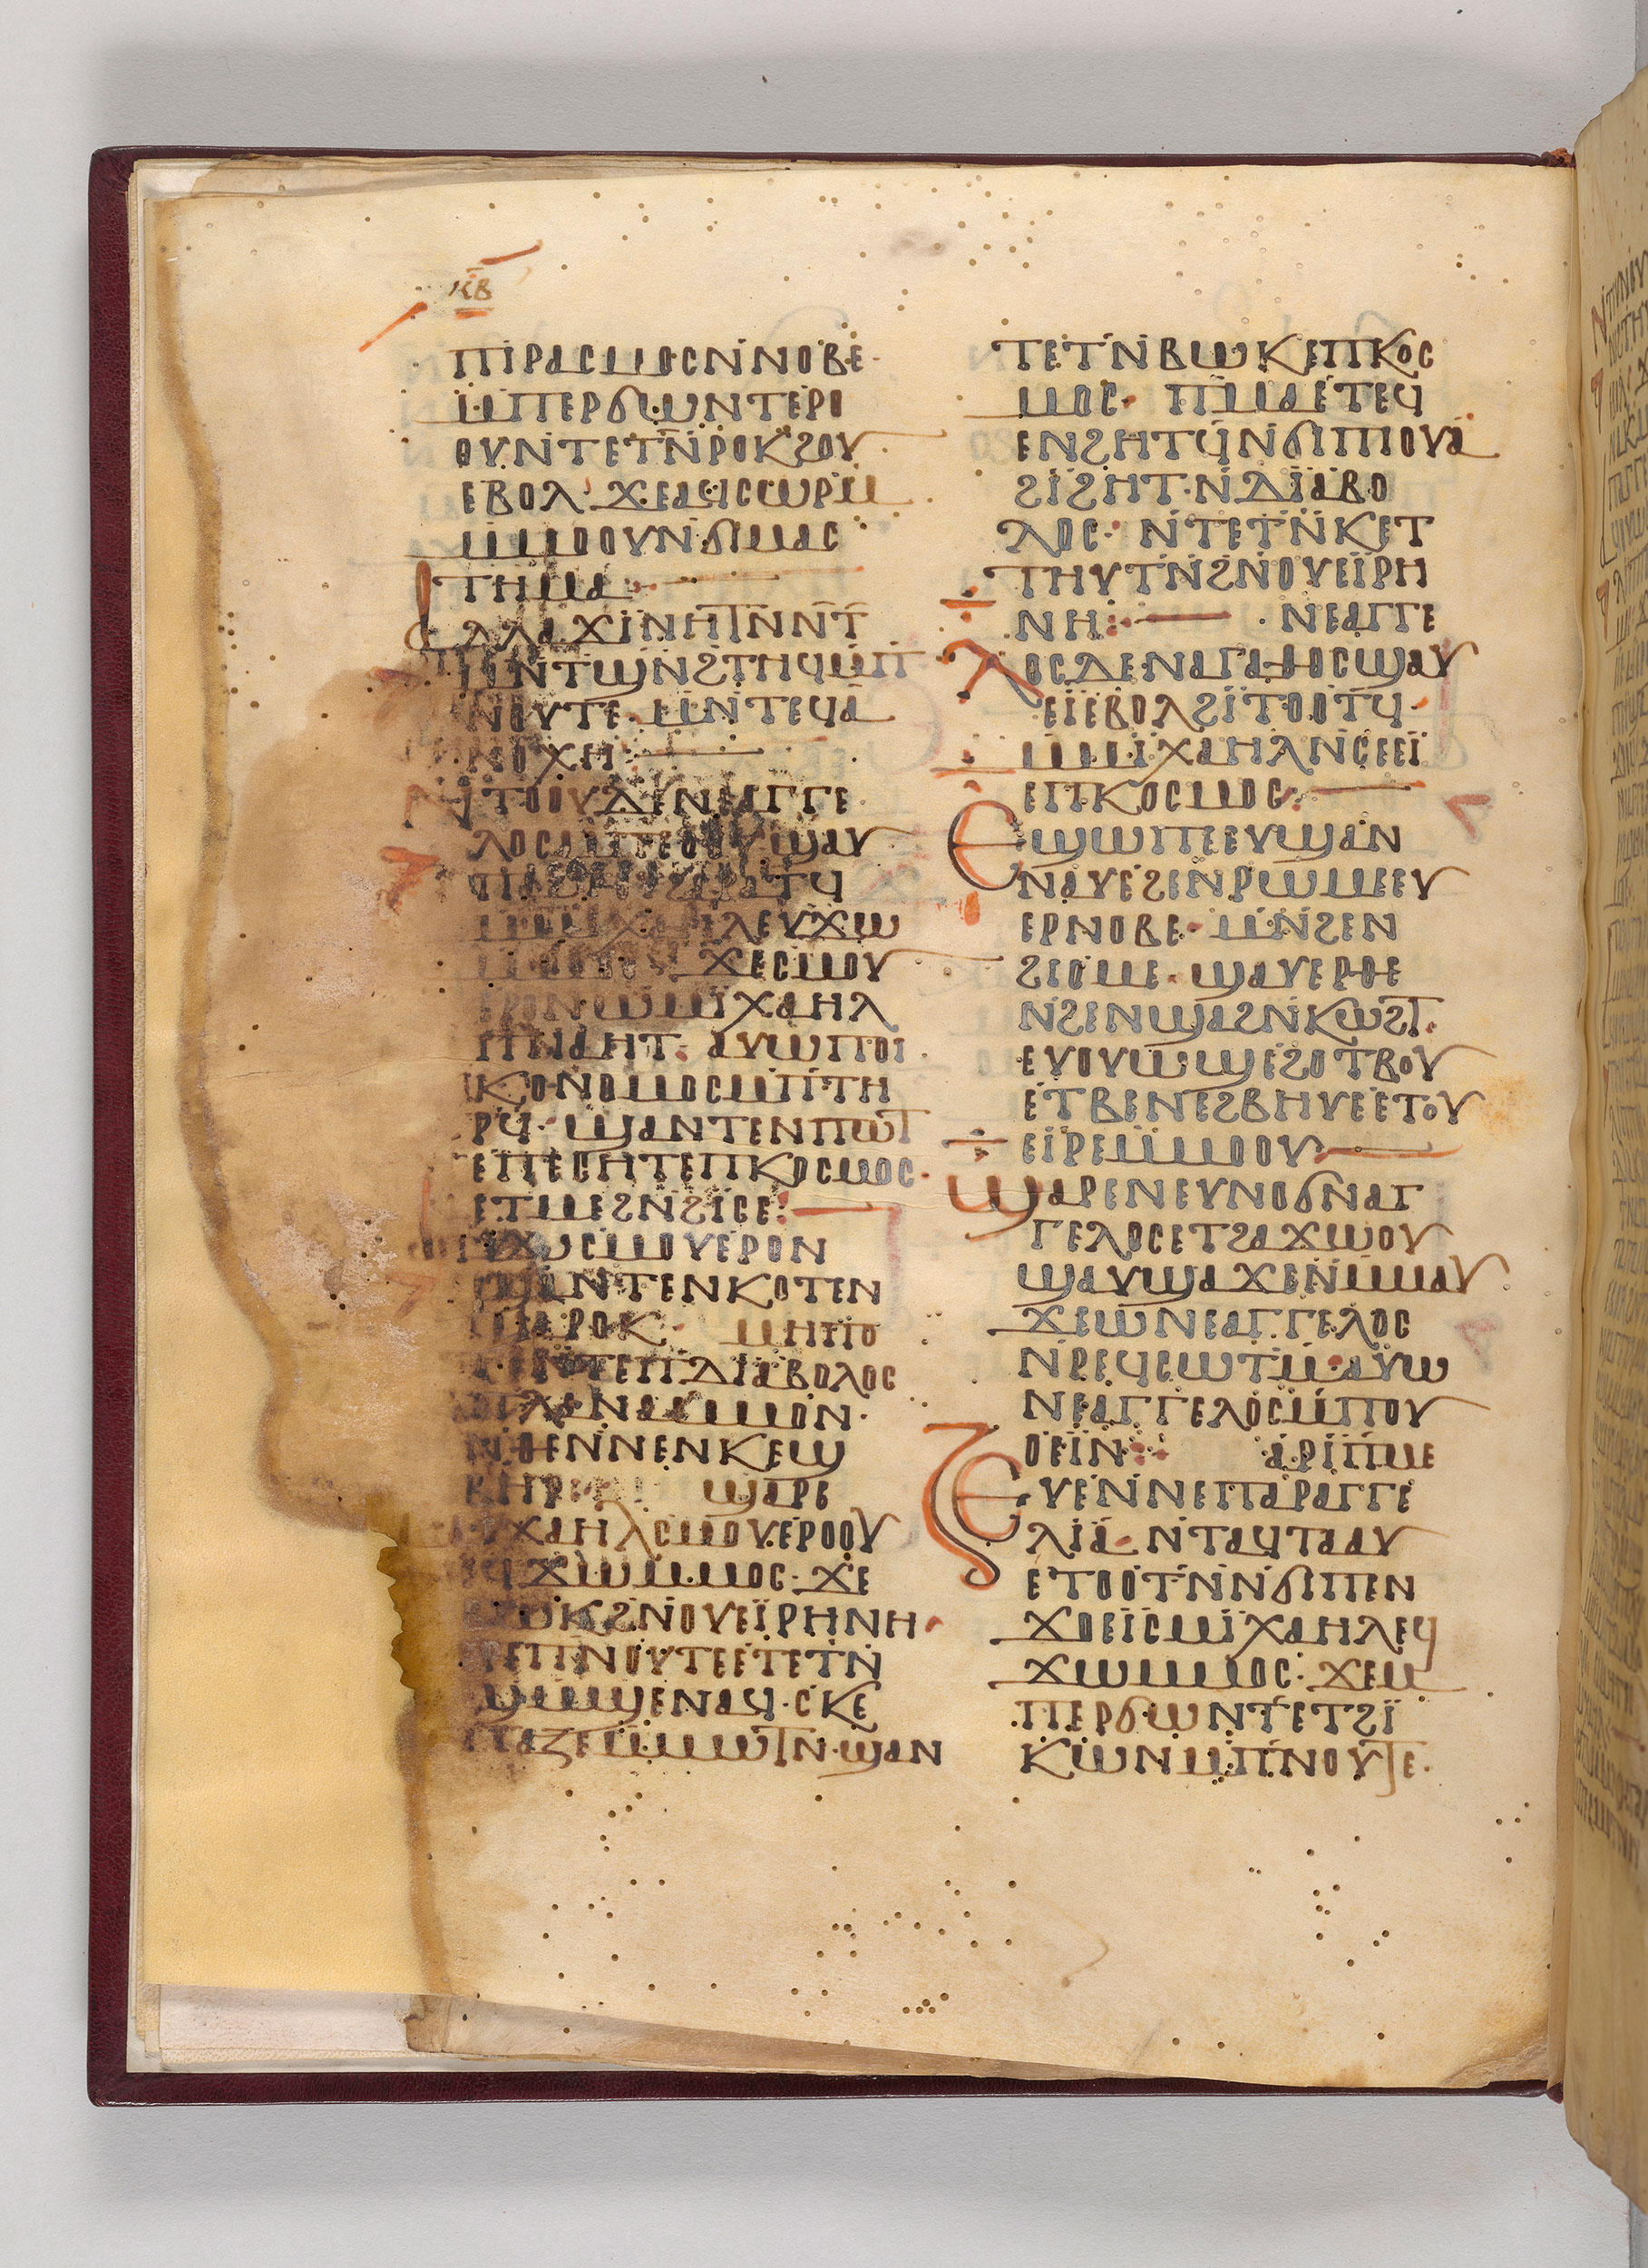 ⲕⲃ
ⲡⲓⲣⲁⲥⲙⲟⲥⲛⲛⲟⲃⲉ·
ⲙⲡⲉⲣϭⲱⲛⲧⲉⲣⲟ
ⲟⲩⲛⲧⲉⲧⲛⲣⲟⲕϩⲟⲩ
ⲉⲃⲟⲗ· ϫⲉⲁϥⲥⲱⲣⲙ
ⲙⲙⲟⲟⲩⲛϭⲓⲙⲁⲥ
ⲧⲏⲙⲁ
ⲁⲗⲗⲁϫⲓⲛⲏⲧⲛⲛⲧ
ⲙⲛⲧϣⲛϩⲧⲏϥⲙⲡ
ⲛⲟⲩⲧⲉ· ⲙⲛⲧⲉϥⲁ
ⲛⲟⲭⲏ
ⲛⲧⲟⲟⲩⲇⲉⲛⲉⲁⲅⲅⲉ
ⲗⲟⲥⲙⲡⲉⲟⲟⲩϣⲁⲩ
ⲙⲙⲓⲭⲁⲏⲗⲉⲩϫⲱ
ϫⲉⲥⲙⲟⲩ
ⲉⲣⲟⲛⲱⲙⲓⲭⲁⲏⲗ
ⲡⲛⲁⲏⲧ· ⲁⲩⲱⲡⲟⲓ
ⲕⲟⲛⲟⲙⲟⲥⲙⲡⲧⲏ
ⲣϥ· ϣⲁⲛⲧⲉⲛⲡⲱⲧ
ⲉⲡⲉⲥⲏⲧⲉⲡⲕⲟⲥⲙⲟⲥ·
ⲉⲧⲙⲉϩⲛϩⲓⲥⲉ:
ⲥⲙⲟⲩⲉⲣⲟⲛ
ϣⲁⲛⲧⲉⲛⲕⲟⲧⲉⲛ
ϣⲁⲣⲟⲕ· ⲙⲏⲡⲟ
ⲧⲉⲛⲧⲉⲡⲇⲓⲁⲃⲟⲗⲟⲥ
ⲡⲗⲁⲛⲁⲙⲙⲟⲛ·
ⲛⲑⲉⲛⲛⲉⲛⲕⲉϣ
ⲃⲏⲣ ϣⲁⲣⲉ
ⲙⲓⲭⲁⲏⲗⲥⲙⲟⲩⲉⲣⲟⲟⲩ
ⲉϥϫⲱⲙⲙⲟⲥ· ϫⲉ
ⲃⲱⲕϩⲛⲟⲩⲉⲓⲣⲏⲛⲏ·
ⲉⲣⲉⲡⲛⲟⲩⲧⲉⲉⲧⲉⲧⲛ
ϣⲙϣⲉⲛⲁϥ·ⲥⲕⲉ
ⲡⲁⲍⲉⲙⲙⲱⲧⲛ·ϣⲁⲛ
ⲧⲉⲧⲛⲃⲱⲕⲉⲡⲕⲟⲥ
ⲙⲟⲥ· ⲡⲙⲁⲉⲧⲉϥ
ⲉⲛϩⲏⲧϥⲛϭⲓⲡⲓⲟⲩⲁ
ϩⲓϩⲏⲧ·ⲛⲇⲓⲁⲃⲟ
ⲗⲟⲥ· ⲛⲧⲉⲧⲛⲕⲉⲧ
ⲧⲏⲩⲧⲛϩⲛⲟⲩⲉⲓⲣⲏ
ⲛⲏ: ·ⲛⲉⲁⲅⲅⲉ
ⲗⲟⲥⲇⲉ·ⲛⲁⲅⲁⲑⲟⲥϣⲁⲩ
ⲉⲓⲉⲃⲟⲗϩⲓⲧⲟⲟⲧϥ·
ⲙⲙⲓⲭⲁⲏⲗⲛⲥⲉⲉⲓ
ⲉⲡⲕⲟⲥⲙⲟⲥ·
ⲉϣⲱⲡⲉⲉⲩϣⲁⲛ
ⲛⲁⲩⲉϩⲉⲛⲣⲱⲙⲉⲉⲩ
ⲉⲣⲛⲟⲃⲉ· ⲙⲛϩⲉⲛ
ϩⲓⲟⲙⲉ· ϣⲁⲩⲉⲣⲑⲉ
ⲛϩⲉⲛϣⲁϩⲛⲕⲱϩⲧ·
ⲉⲩⲟⲩⲱϣⲉϩⲟⲧⲃⲟⲩ
ⲉⲧⲃⲉⲛⲉϩⲃⲏⲩⲉⲉⲧⲟⲩ
ⲉⲓⲣⲉⲙⲙⲟⲟⲩ
ϣⲁⲣⲉⲛⲉⲩⲛⲟϭⲛⲁⲅ
ⲅⲉⲗⲟⲥⲉⲧϩⲁϫⲱⲟⲩ
ϣⲁⲩϣⲁϫⲉⲛⲙⲙⲁⲩ
ϫⲉⲱⲛⲉⲁⲅⲅⲉⲗⲟⲥ
ⲛⲣⲉϥⲥⲱⲧⲙ·ⲁⲩⲱ
ⲛⲉⲁⲅⲅⲉⲗⲟⲥⲙⲡⲟⲩ
ⲟⲉⲓⲛ· ⲁⲣⲓⲡⲙⲉ
ⲉⲩⲉⲛⲛⲉⲡⲁⲣⲁⲅⲅⲉ
ⲗⲓⲁ· ⲛⲧⲁϥⲧⲁⲁⲩ
ⲉⲧⲟⲟⲧⲛⲛϭⲓⲡⲉⲛ
ϫⲟⲉⲓⲥⲙⲓⲭⲁⲏⲗⲉϥ
ϫⲱⲙⲙⲟⲥ· ϫⲉⲙ
ⲡⲉⲣϭⲱⲛⲧⲉⲧϩⲓ
ⲕⲱⲛⲙⲡⲛⲟⲩⲧⲉ·